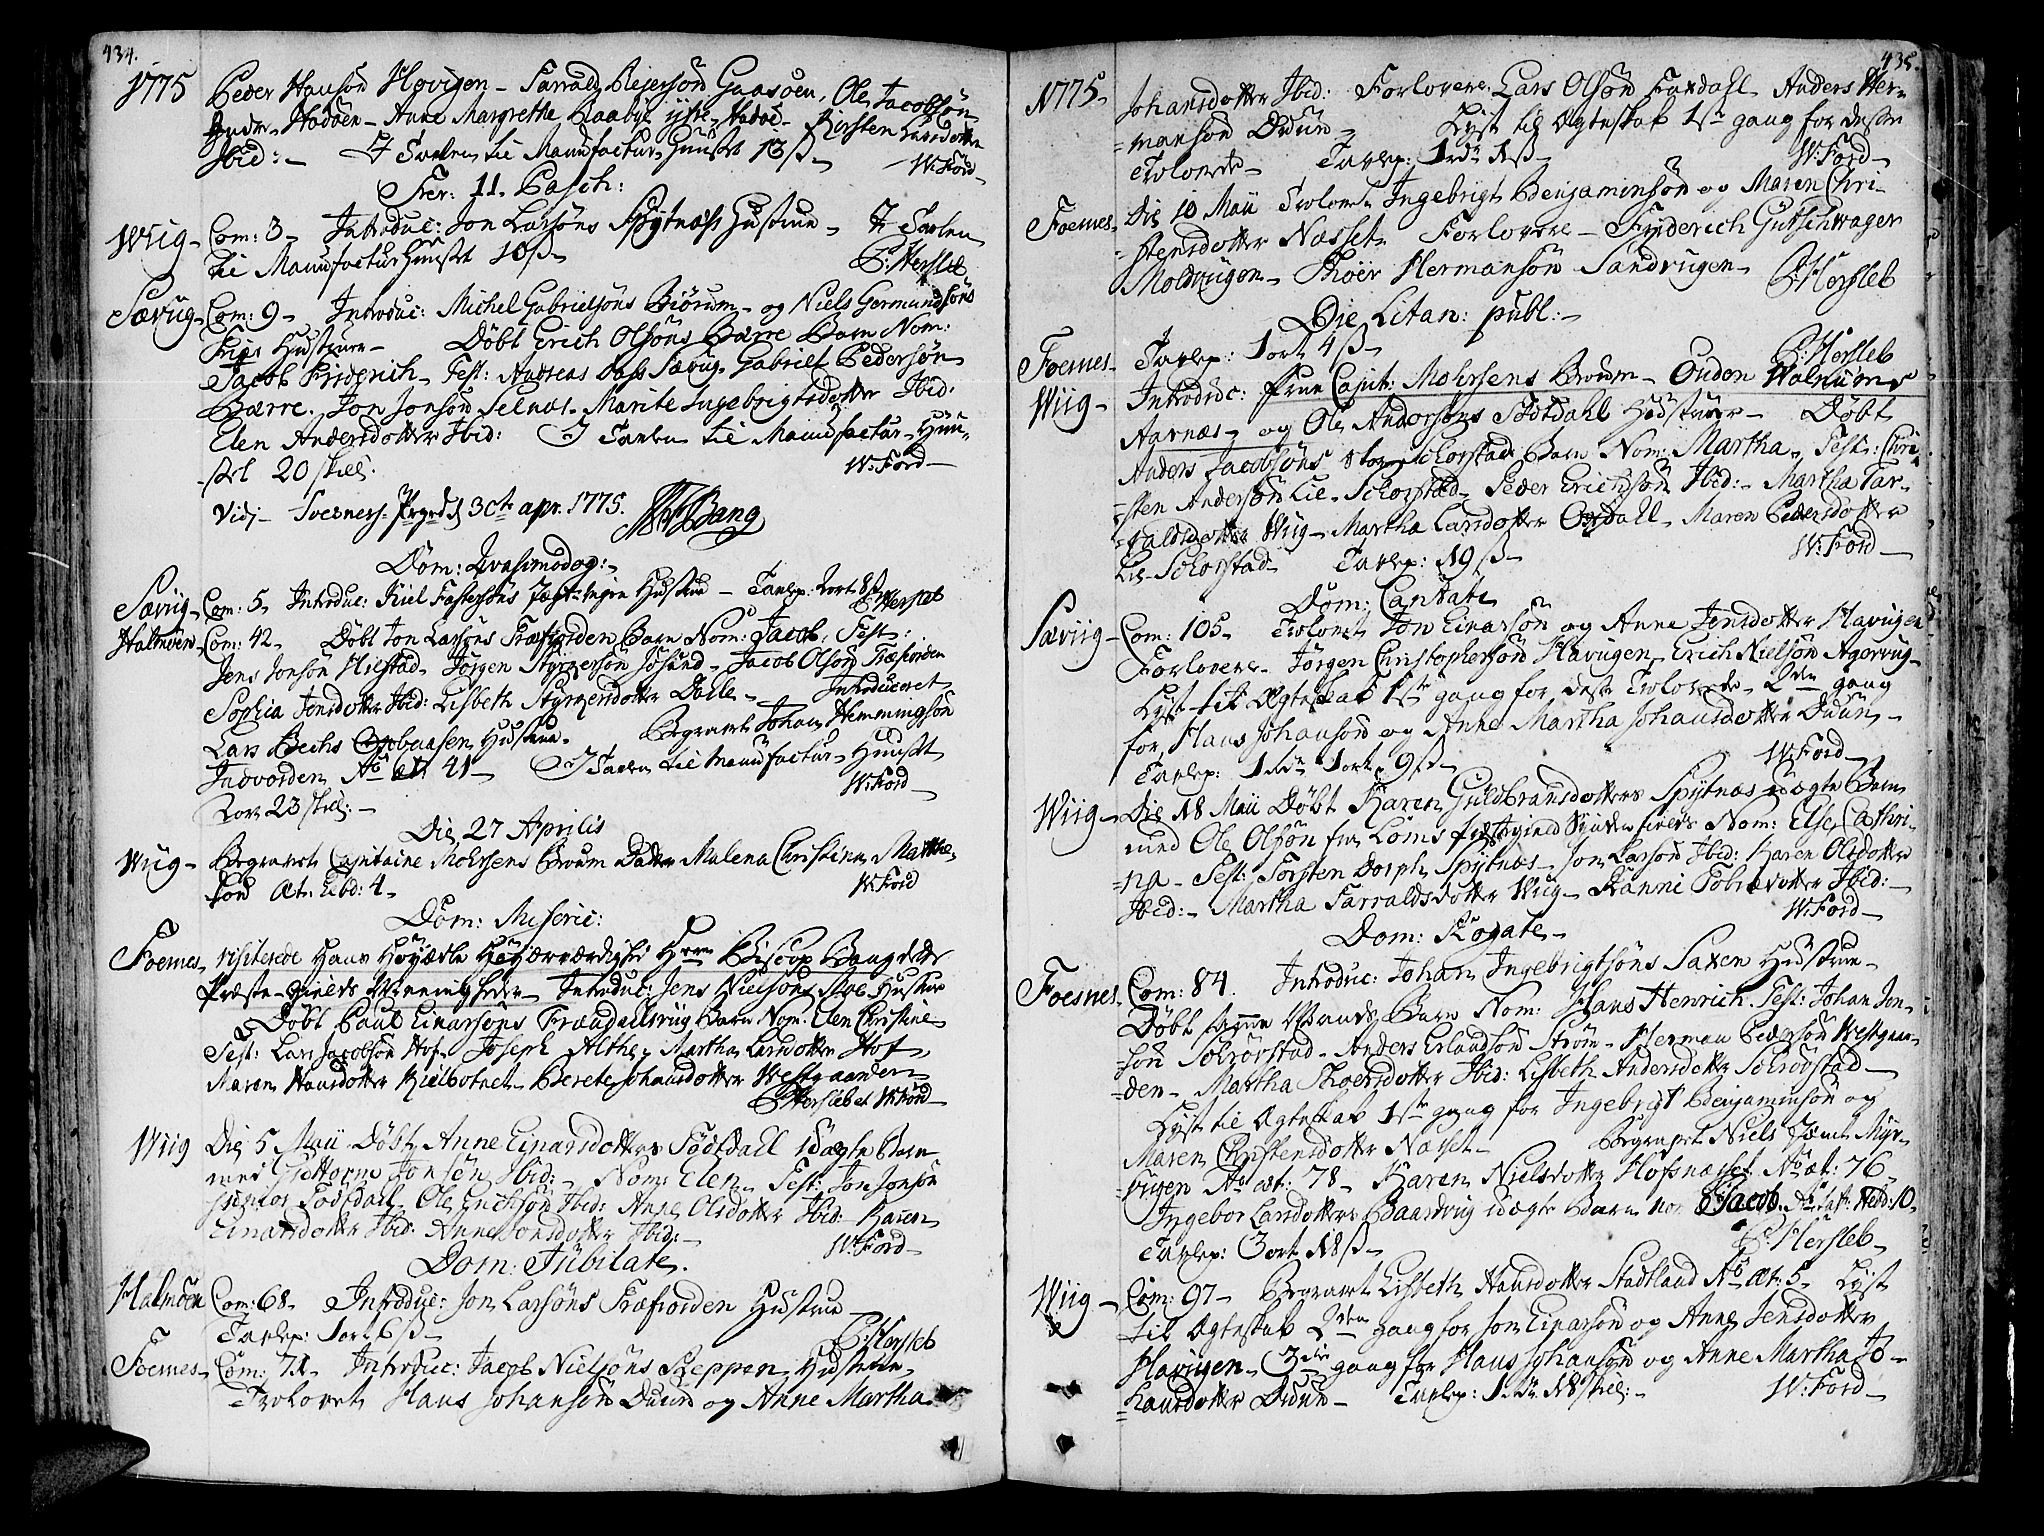 434.
1775 Peder Hansøn Høvigen - Tarrald Rejersøn Gaasøen, Ole Jacobsøn
Hodøen - Anne Margrethe Raabye Hodøe - Kirsten Larsdotter
Ibid: - I Tavlen til Manufactur Huuset 13 ß - W: Ford -
Fer: 11. Pasch:
Wiig - Com: 3 - Introduc: Jon Larsøns Spytnæss Hustrue - I Tavlen
til Manufactur Huuset 10 ß - P: Hersleb
Særvig - Com: 9 - Introduc: Michel Gabrielsøns Biørum - og Niels Germundsøns
Hustruer - Døbt Erich Olsøns Bærre Barn Nom:
Jacob Friderich - Test: Andreas Dass Særvig - Gabriel Pedersøn
Bærre. Jon Jonsøn Selnæs - Marite Ingebrigtsdotter Ibid:
Elen Andersdotter Ibid: I Tavlen til Manufactur - Huu-
set 20 skill. W: Ford -
Vidi - Foesnes Prgrd d 30th apr. 1775. Bang
Dom: Qvasimodog: -
Særvig - Com: 5 - Introduc: Kiel Fastersøns Hustrue - Tavlep: 1 ort 8 ß P: Hersleb
Halmøen - Com: 42 - Døbt Jon Larsøns Træfiorden Barn Nom: Jacob, Test:
Jens Jonsøn Hiestad - Jørgen Styrkersøn Jøssund - Jacob Olsøn Træfiorden
Sophia Jensdotter Ibid: Lisbeth Styrkersdotter Dalle - Introduceret
Lars Bechs Hustrue - Begravet Johan Hemmingsøn
Indvorden Ao æt: 41 - I Tavlen til Manufactur - Huuset
1 ort 23 skill: - W: Ford -
Die 27 Aprilis
Wiig - Begravet Capitaine Mohrsens Broum Dotter Malena Christina
Æt: Ebd: 4 - W: Ford
Dom: Miseric:
Foesnes - visiterede Hans Høyædle Høyærværdighed Hrr Biscop Bang dette
Præste-gields Menigheder - Introduc: Jens Nielsøns Hustrue
Døbt Paul Einarsøns Frændalsviig Barn Nom: Elen Christine
Test: Lars Jacobsøn Hof - Joseph Althe - Martha Larsdotter Hof -
Maren Hansdotter Kielbotnet - Berete Johansdotter Westgaarden -
P: Hersleb et W: Ford -
Wiig Die 5 Maii Døbt Anne Einarsdotters Fødtdall Uægte Barn
med Guttorm Jonsøn Ibid: - Nom: Elen - Test: Jon Jonsøn
Senior Fødtdall - Ole Erichsøn Ibid: Anne Olsdotter Ibid: Karen
Einarsdotter Ibid: Anne Jonsdotter Ibid: - W: Ford -
Dom: Jubilate.
Halmøen Com: 68 - Introduc: Jon Larsøns Træfiorden Hustrue -
Tavlep: 1 ort 6 ß - P: Hersleb
Foesnes - Com: 71 - Introduc: Jacob Nielsøns Seppen - Hustrue -
Trolovet Hans Johansøn Duun og Anne Martha
435.
1775 - Johansdotter Ibid: Forlovere Lars Olsøn Faxdahl - Anders Her-
mansøn Duun - Lyst til Ægteskab 1ste gang for disse
Trolovede - Tavlep: 1 rdr 1 ß - W: Ford -
Foesnes - Die 10 Maii Trolovet Ingebrigt Benjaminsøn og Maren Chri-
=stensdotter Næsset - Forlovere - Friderich Gutschwager
Moldvigen - Thoer Hermansøn Sandvigen - P: Hersleb
Die Litan: publ: -
Foesnes - Tavlep: 1 ort 4 ß - P: Hersleb
Wiig - Introduc: Frue Capit: Mohrsens Broum - Ouden Halmøens
Aarnæs - og Ole Andersøns Fødtdahl Hustruer - Døbt
Anders Jacobsøns Stor-Schorstad Barn Nom: Martha - Test: Chri-
=sten Andersøn Lil-Schorstad - Peder Erichsøn Ibid: - Martha Tar-
=raldsdotter Wiig - Martha Larsdotter Opdall - Maren Pedersdotter
Lil-Schorstad - Tavlep: 19 ß - W: Ford -
Dom: Cantate
Særviig - Com: 105 - Trolovet Jon Einarsøn og Anne Jensdotter Havigen
Forlovere - Jørgen Christophersøn Havigen, Erich Nielsøn Agervig -
Lyst til Ægteskab 1ste gang for disse Trolovede - 2den gang
for Hans Johansøn og Anne Martha Johansdotter Duun -
Tavlep: 1 rdr 1 ort 9 ß - W: Ford -
Wiig - Die 18 Maii Døbt Karen Guldbransdotters Spytnæs Uægte Barn
med Ole Olsøn fra Loms Nom: Else Cathri-
=na - Test: Torsten Dorph Spytnæs - Jon Larsøn Ibid: Karen Olsdotter
Ibid: - Martha Tarraldsdotter Wiig - Ibid: -
W: Ford -
Dom: Rogate -
Foesnes - Com: 84. Introduc: Johan Ingebrigtsøns Saxen Hustrue -
Døbt Barn Nom: Hans Henrich. Test: Johan Jon-
=søn Schrøstad - Anders Erlandsøn Strøm - Herman Pedersøn Westgaar-
=den - Martha Thoersdotter Ibid: Lisbeth Andersdotter Schrøstad -
Lyst til Ægteskab 1ste gang for Ingebrigt Benjaminsøn og
Maren Christensdotter Næsset - Begravet Niels Myr-
=vigen Ao æt: 78 - Karen Nielsdotter Hofsnæsset Ao æt: 76 -
Ingebor Larsdotters Baardvig Uægte Barn nom Jacob. 10.
Tavlep: 3 ort 18 ß - P: Hersleb -
Wiig - Com: 97 - Begravet Lisbeth Hansdotter Stadtland Ao æt: 5 - Lyst
til Ægteskab 2den gang for Jon Einarsøn og Anne Jensdotter
Havigen - 3die gang for Hans Johansøn og Anne Martha Jo-
=hansdotter Duun - Tavlep: 1 rdr 18 skill: - W: Ford -